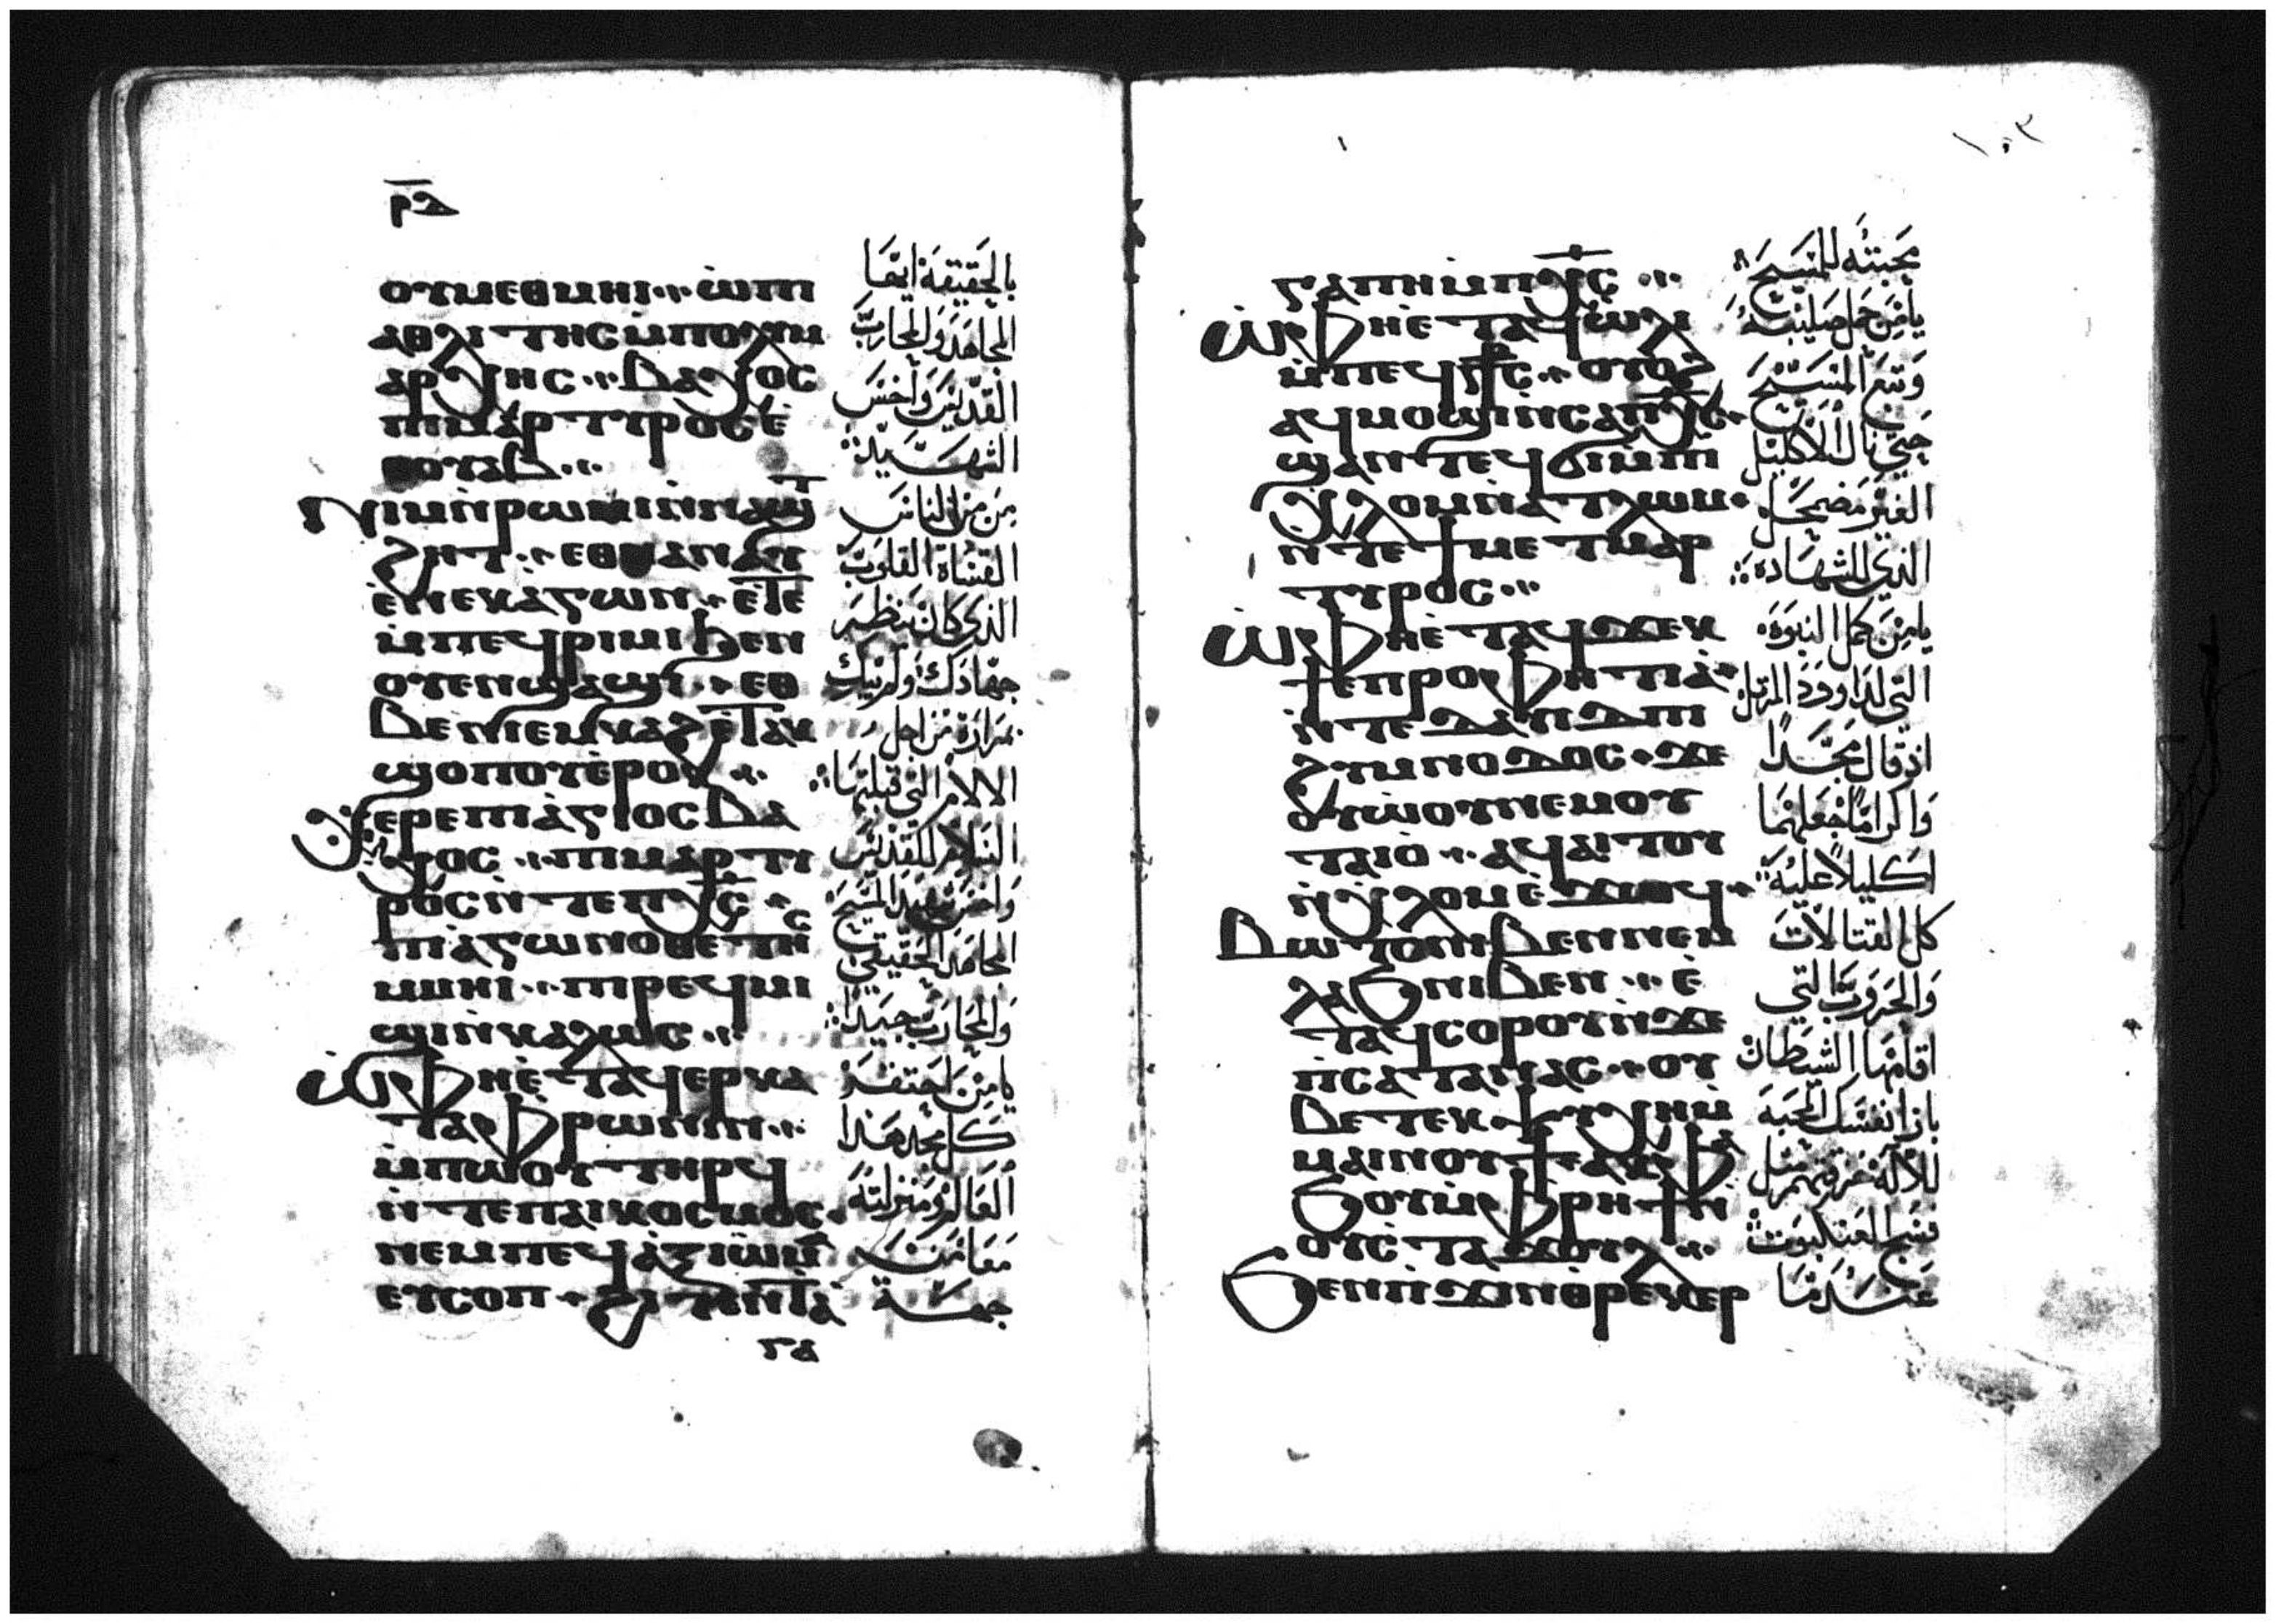 ⲣ̅ⲇ̅
ⲟⲩⲙⲉⲑⲙⲏⲓ ⁘ ⲱ̀ⲡⲓ
ⲁⲑⲗⲓⲧⲏⲥ ⲙ̀ⲡⲟⲗⲩⲙ
ⲁⲣⲭⲏⲥ ⁘ ⲃⲁⲭⲟⲥ
ⲡⲓⲙⲁⲣⲧⲩⲣⲟⲥ ⲉ̀
ⲑⲟⲩⲁⲃ ⁘
ⲛⲓⲙ ⲛ̀ⲣⲱⲙⲓ ⲛ̀ⲛⲁϣⲧ
ϩⲏⲧ ⁘ ⲉⲑⲛⲁⲛⲁⲩ
ⲉ̀ⲛⲉⲕⲁⲅⲱⲛ ⁘ ⲉⲧⲉ
ⲙ̀ⲡⲉϥⲣⲓⲙⲓ ϧⲉⲛ
ⲟⲩⲉⲛϣⲁϣⲓ ⁘ ⲉⲑ
ⲃⲉⲛⲓⲉⲙⲕⲁϩ ⲉⲧⲁⲕ
ϣⲟⲡⲟⲩ ⲉ̀ⲣⲟⲕ ⁘
ⲭⲉⲣⲉ ⲡⲓⲁ̀ⲅⲓⲟⲥ ⲃⲁ
ⲭⲟⲥ ⁘ ⲡⲓⲙⲁⲣⲧⲩ
ⲣⲟⲥ ⲛ̀ⲧⲉⲡⲭ̅ⲥ̅
ⲡⲓⲁ̀ⲅⲱⲛⲟⲑⲉⲧⲏⲥ
ⲙⲙⲏⲓ ⁘ ⲡⲓⲣⲉϥⲙⲓ
ϣⲓ ⲛ̀ⲕⲁⲗⲱⲥ ⁘
ⲱ̀ ⲫⲏⲉ̀ⲧⲁϥⲉⲣⲕⲁ
ⲧⲁⲫⲣⲱⲛⲓⲛ ⁘
ⲙ̀ⲡⲱⲟⲩ ⲧⲏⲣϥ
ⲛ̀ⲧⲉⲡⲁⲓⲕⲟⲥⲙⲟⲥ
ⲛⲉⲙⲡⲉϥⲁ̀ⲝⲓⲱⲙⲁ
ⲉⲩⲥⲟⲡ ⁘ ϩⲓⲧⲉⲛϯⲁ̀
ⲅⲁ
بالحقيقة ايها
المجاهد والمحارب
القديس واخس
الشهيد
من من الناس
القساة القلوب
الذي كان ينظر
جهادك ولم يبك
بمرارة من اجل
الالام التي قبلتها
السلام للقديس
واخس شهيد المسيح
المجاهد الحقيقي
والمحارب جيدا
يا من احتقر
كل مجد هذا
العالم ومنزلته
معا من
جهة
١٠٣
ⲅⲁⲡⲏ ⲙ̀ⲡⲭ̅ⲥ̅ ⁘
ⲱ̀ ⲫⲏⲉ̀ⲧⲁϥⲱⲗⲓ
ⲙ̀ⲡⲉϥⲥⲧ̅ⲥ̅ ⁘ ⲟⲩⲟϩ
ⲁϥⲙⲟϣⲓ ⲛ̀ⲥⲁⲡⲭ̅ⲥ̅
ϣⲁⲛⲧⲉϥϭⲓ ⲙ̀ⲡⲓ
ⲭⲗⲟⲙ ⲛ̀ⲁⲧⲗⲱⲙ
ⲛ̀ⲧⲉϯⲙⲉⲧⲙⲁⲣ
ⲧⲩⲣⲟⲥ ⁘
ⲱ̀ ⲫⲏⲉ̀ⲧⲁϥϫⲉⲕ
ϯⲡⲣⲟⲫⲏⲧⲓⲁ
ⲛ̀ⲧⲉⲇⲁⲇ ⲡⲓ
ϩⲩⲙⲛⲟⲇⲟⲥ ϫⲉ
ⲟⲩⲱⲟⲩ ⲛⲉⲙⲟⲩ
ⲧⲁⲓⲟ ⁘ ⲁϥⲁⲓⲧⲟⲩ
ⲛ̀ⲭⲗⲟⲙ ⲉ̀ϫⲱϥ
ⲃⲱⲧⲟⲛ ⲃⲉⲛ ⲛⲉⲙ
ⲗⲁϧ ⲛⲓⲃⲉⲛ ⁘ ⲉ̀
ⲧⲁϥⲥⲟⲣⲟⲩ ⲛ̀ϫⲉ
ⲡⲥⲁⲧⲁⲛⲁⲥ ⁘ ⲟⲩ
ⲃⲉⲧⲉⲕⲯⲩⲭⲏ ⲙ̀
ⲙⲁⲓⲛⲟⲩϯ ⲁⲕⲫ
ϧⲟⲩ ⲙ̀ⲫⲣⲏϯ ⲛ̀
ⲟⲩⲥⲧⲁϫⲟⲩⲗ ⁘
ϧⲉⲛⲡ̀ϫⲓⲛⲑⲣⲉⲕⲉⲣ
محبته للمسيح
يا من حمل صليبه
وتبع المسيح
حتى نال الاكليل
الغير مضمحل
الذي للشهاده
يا من كمل النبوه
التي لداوود المرتل
اذ قال مجدا
واكراما جعلهما
اكليلا عليه
كل القتالات
والحروب التي
اقامها الشيطان
بازا نفسك المحبة
للاله خرقتهم مثل
نسج العنكبوت
عندما